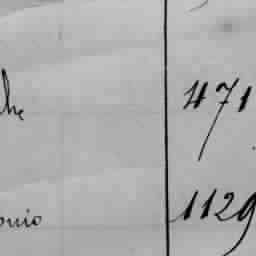 471
onio 1129